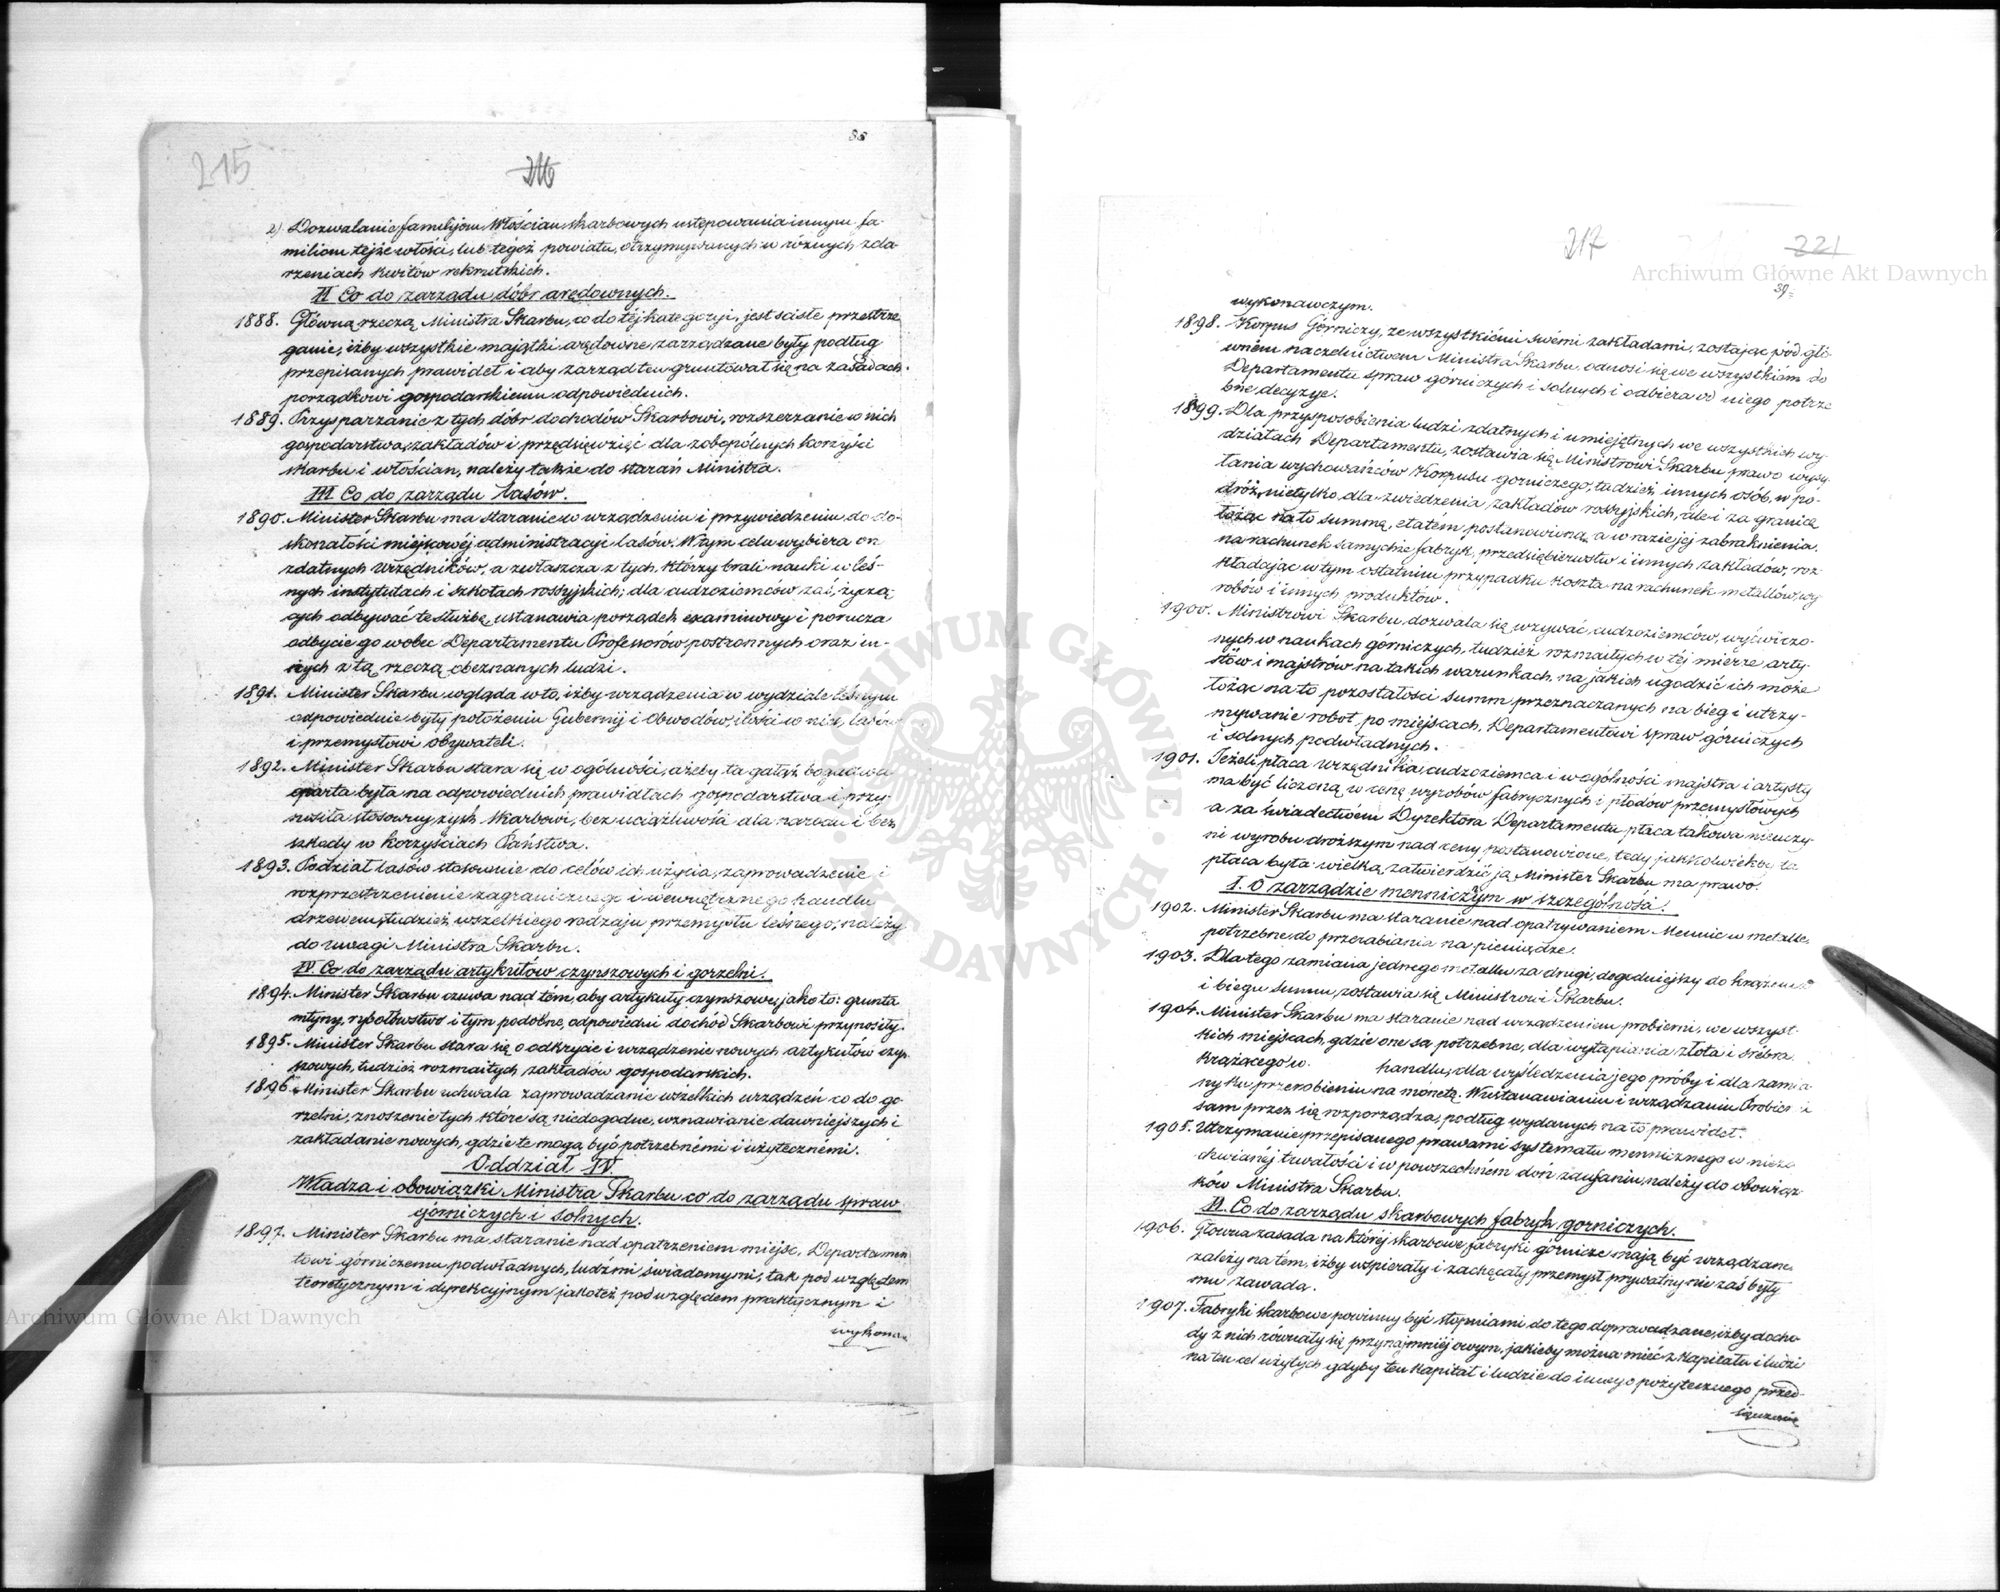 88
215
216
2) Dozwalanie familijom Włościan skarbowych ustępowania innym fa-
miliom tejże włości, lub tegoż powiatu, otrzymywanych w różnych zda-
rzeniach kwitów rekrutskich.
II Co do zarządu dóbr arędownych.
1888. Główną rzeczą Ministra Skarbu, co do téj kategoryi, jest sciśłe przestrze
ganie, iżby wszystkie majątki arędowne zarządzane były podług
przepisanych prawideł i aby zarząd ten gruntował się na zasadach.
porządkowi gospodarskiemu odpowiednich.
1889. Przysparzanie z tych dóbr dochodów Skarbowi, rozszerzanie w nich
gospodarstwa, zakładów i przędsięwzięć dla zobopólnych korzyści
skarbu i włościan, należy także do starań Ministra.
III Co do zarządu lasów.
1890. Minister Skarbu ma staranie w urządzeniu i przywiedzeniu do do-
skonałości miejscowéj administracyi lasów. W tym celu wybiera on
zdatnych urzędników, a zwłaszcza z tych, którzy brali nauki w leś-
nych instytutach i szkołach rossyjskich; dla cudzoziemców zaś, życzą-
cych odbywać tę służbę, ustanawia porządek examinowy i porucza
odbycie go wobec Departamentu Professorów postronnych oraz in-
nych z tą rzeczą obeznanych ludzi.
1891. Minister Skarbu wgląda w to, iżby urządzenia w wydziale leśnym
odpowiednie były położeniu Gubernij i Obwodów, ilości w nich lasów
i przemysłowi obywateli.
1892. Minister Skarbu stara się w ogólności, ażeby ta gałęź bogactwa
oparta była na odpowiednich prawidłach gospodarstwa i przy-
nosiła stosowny zysk Skarbowi, bez uciążliwości dla narodu i bez
szkody w korzyściach Państwa.
1893. Podział lasów stosownie do celów ich użycia, zaprowadzenie i
rozprzestrzenienie zagranicznego i wewnętrznego handlu
drzewem, tudzież wszelkiego rodzaju przemysłu leśnego, należy
do uwagi Ministra Skarbu.
IV. Co do zarządu artykułów czynszowych i gorzelni.
1894. Minister Skarbu czuwa nad tém, aby artykuły czynszowe, jako to: grunta
młyny, rybołówstwo i tym podobne, odpowiedni dochód Skarbowi przynosiły.
1895. Minister Skarbu stara się o odkrycie i urządzenie nowych artykułów czyn-
szowych, tudzież rozmaitych zakładów gospodarskich.
1896. Minister Skarbu uchwala zaprowadzanie wszelkich urządzeń co do go-
rzelni, znoszenie tych które są niedogodne, wznawianie dawniejszych i
zakładanie nowych, gdzie te mogą być potrzebnémi i użytecznémi.
Oddział IV.
Władza i obowiązki Ministra Skarbu co do zarządu spraw
górniczych i solnych.
1897. Minister Skarbu ma staranie nad opatrzeniem miejsc, Departamen
towi górniczemu podwładnych, ludźmi świadomymi, tak pod względem
teoretycznym i dyrekcyjnym jakoteż pod względem praktycznym i
wykonaw
217
221
39
wykonawczym.
1898. Korpus Górniczy, ze wszystkiémi swémi zakładami, zostając pod głó
wném naczelnictwem Ministra Skarbu, odnosi się we wszystkiém do
Departamentu spraw górniczych i solnych i odbiera od niego potrze
bne decyzye.
1899. Dla przysposobienia ludzi zdatnych i umiejętnych we wszystkich wy-
działach Departamentu, zostawia się Ministrowi Skarbu prawo wysy-
łania wychowańców Korpusu gorniczego, tudzież innych osób, w po-
dróż, nietylko dla zwiedzenia zakładów rossyjskich, ale i za granicę
łożąc na to summę, etatém postanowioną, a w razie jéj zabraknienia
na rachunek samychże fabryk, przedsiębierstw i innych zakładów, roz-
kładając w tym ostatnim przypadku koszta na rachunek metallów, wy
robów i innych produktów.
1900. Ministrowi Skarbu, dozwala się wzywać, cudzoziemców, wyćwiczo-
nych w naukach górniczych, tudzież rozmaitych w téj mierze arty-
stów i majstrów na takich warunkach, na jakich ugodzić ich może
łożąc na to pozostałości summ przeznaczanych na bieg i utrzy-
mywanie robot, po miejscach, Departamentowi spraw górniczych
i solnych podwładnych.
1901. Jeżeli płaca urzędnika, cudzoziemca i w ogólności majstra i artysty
ma być liczoną w cenę wyrobów fabrycznych i płodów przemysłowych
a za świadectwém Dyrektora Departamentu płaca takowa nieuczy-
ni wyrobu droższym nad ceny postanowione, tedy jakkolwiekby ta
płaca była wielką, zatwierdzić ją Minister Skarbu ma prawo.
I. O zarządzie menniczym w szczególności.
1902. Minister Skarbu ma staranie nad opatrywaniem Mennic w metalle
potrzebne do przerabiania na pieniądze.
1903. Dlatego zamiana jednego metallu za drugi, dogodniejszy do krążenia
i biegu summ, zostawia się Ministrowi Skarbu.
1904. Minister Skarbu ma staranie nad urządzeniem probierni, we wszyst-
kich miejscach, gdzie one są potrzebne, dla wytapiania złota i srébra
krążącego w handlu, dla wyśledzenia jego próby i dla zamia
ny ku przerobieniu na monetę. W ustanawianiu i urządzaniu Probierni
sam przez się rozporządza, podług wydanych na to prawideł.
1905. Utrzymanie przepisanego prawami systematu mennicznego w nieza
chwianéj trwałości i w powszechném doń zaufaniu, należy do obowiąz-
ków Ministra Skarbu.
II. Co do zarządu skarbowych fabryk gorniczych.
1906. Główna zasada na któréj skarbowe fabryki górnicze mają być urządzane
zależy na tém, iżby wspierały i zachęcały przemysł prywatny nie zaś były
mu zawadą.
1907. Fabryki skarbowe powinny być stopniami do tego doprowadzane, iżby docho-
dy z nich równały się przynajmniéj owym, jakieby można mieć z kapitału i ludzi
na ten cel użytych gdyby ten kapitał i ludzie do innego pożytecznego przed-
sięwzięcia
Archiwum Główne Akt Dawnych
Archiwum Główne Akt Dawnych
ARCHIWUM GŁÓWNE AKT DAWNYCH